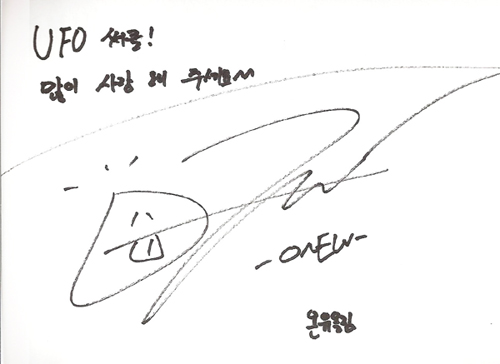 UFO
많이 사랑 해 주세요~
-ONEW-
온유올림